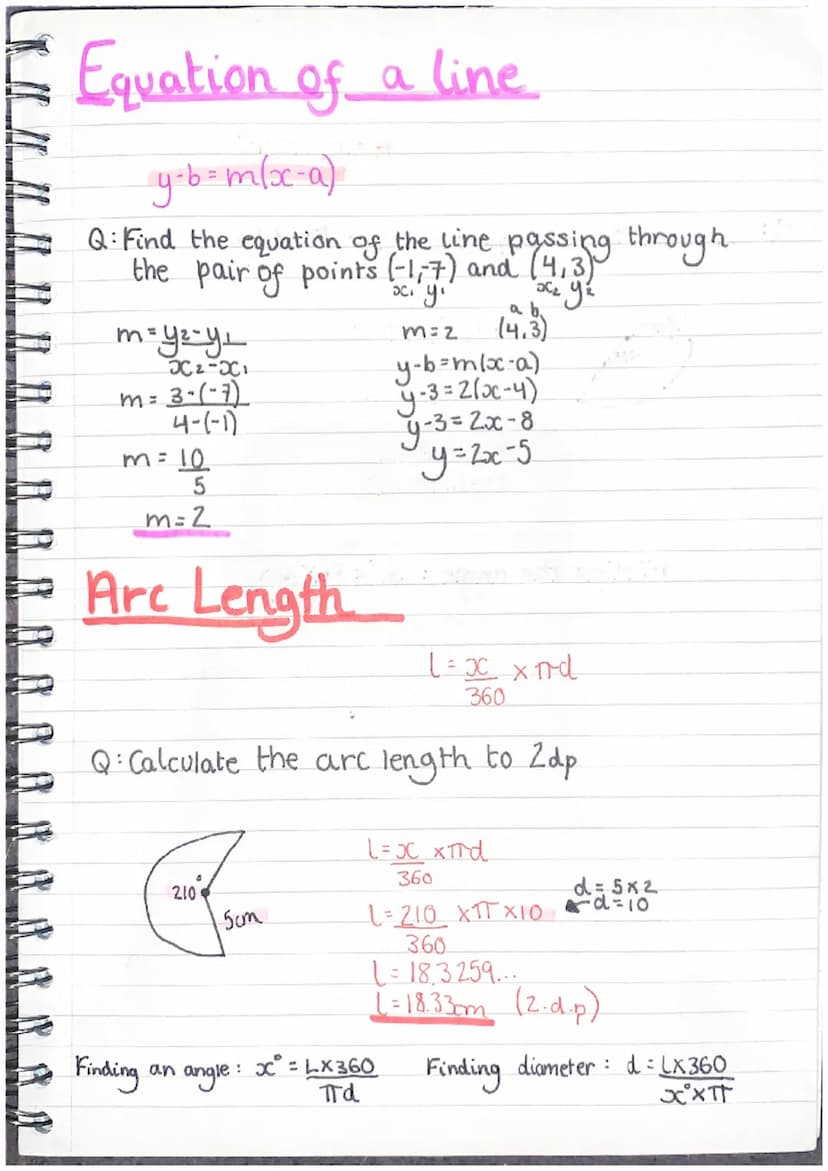 Equation of a line
y-b = m(x-a)
Q: Find the equation of the line passing through
the pair of points (-1,-7) and (4,3)
x₁ y₁ x₂ y₂
m = y₂-y₁
x₂-x₁
m = 3-(-7)
4-(-1)
m = 10
5
m = 2
a b
m = 2 (4,3)
y-b = m(x-a)
y-3 = 2(x-4)
y-3 = 2x-8
y = 2x-5
Arc Length
l = x × πd
360
Q: Calculate the arc length to 2dp
210°
5cm
l = x × πd
360
l = 210 × π × 10
360
d = 5×2
d = 10
l = 18.3259...
l = 18.33cm (2.d.p)
Finding an angle: x° = L×360
πd
Finding diameter: d = L×360
x°×π